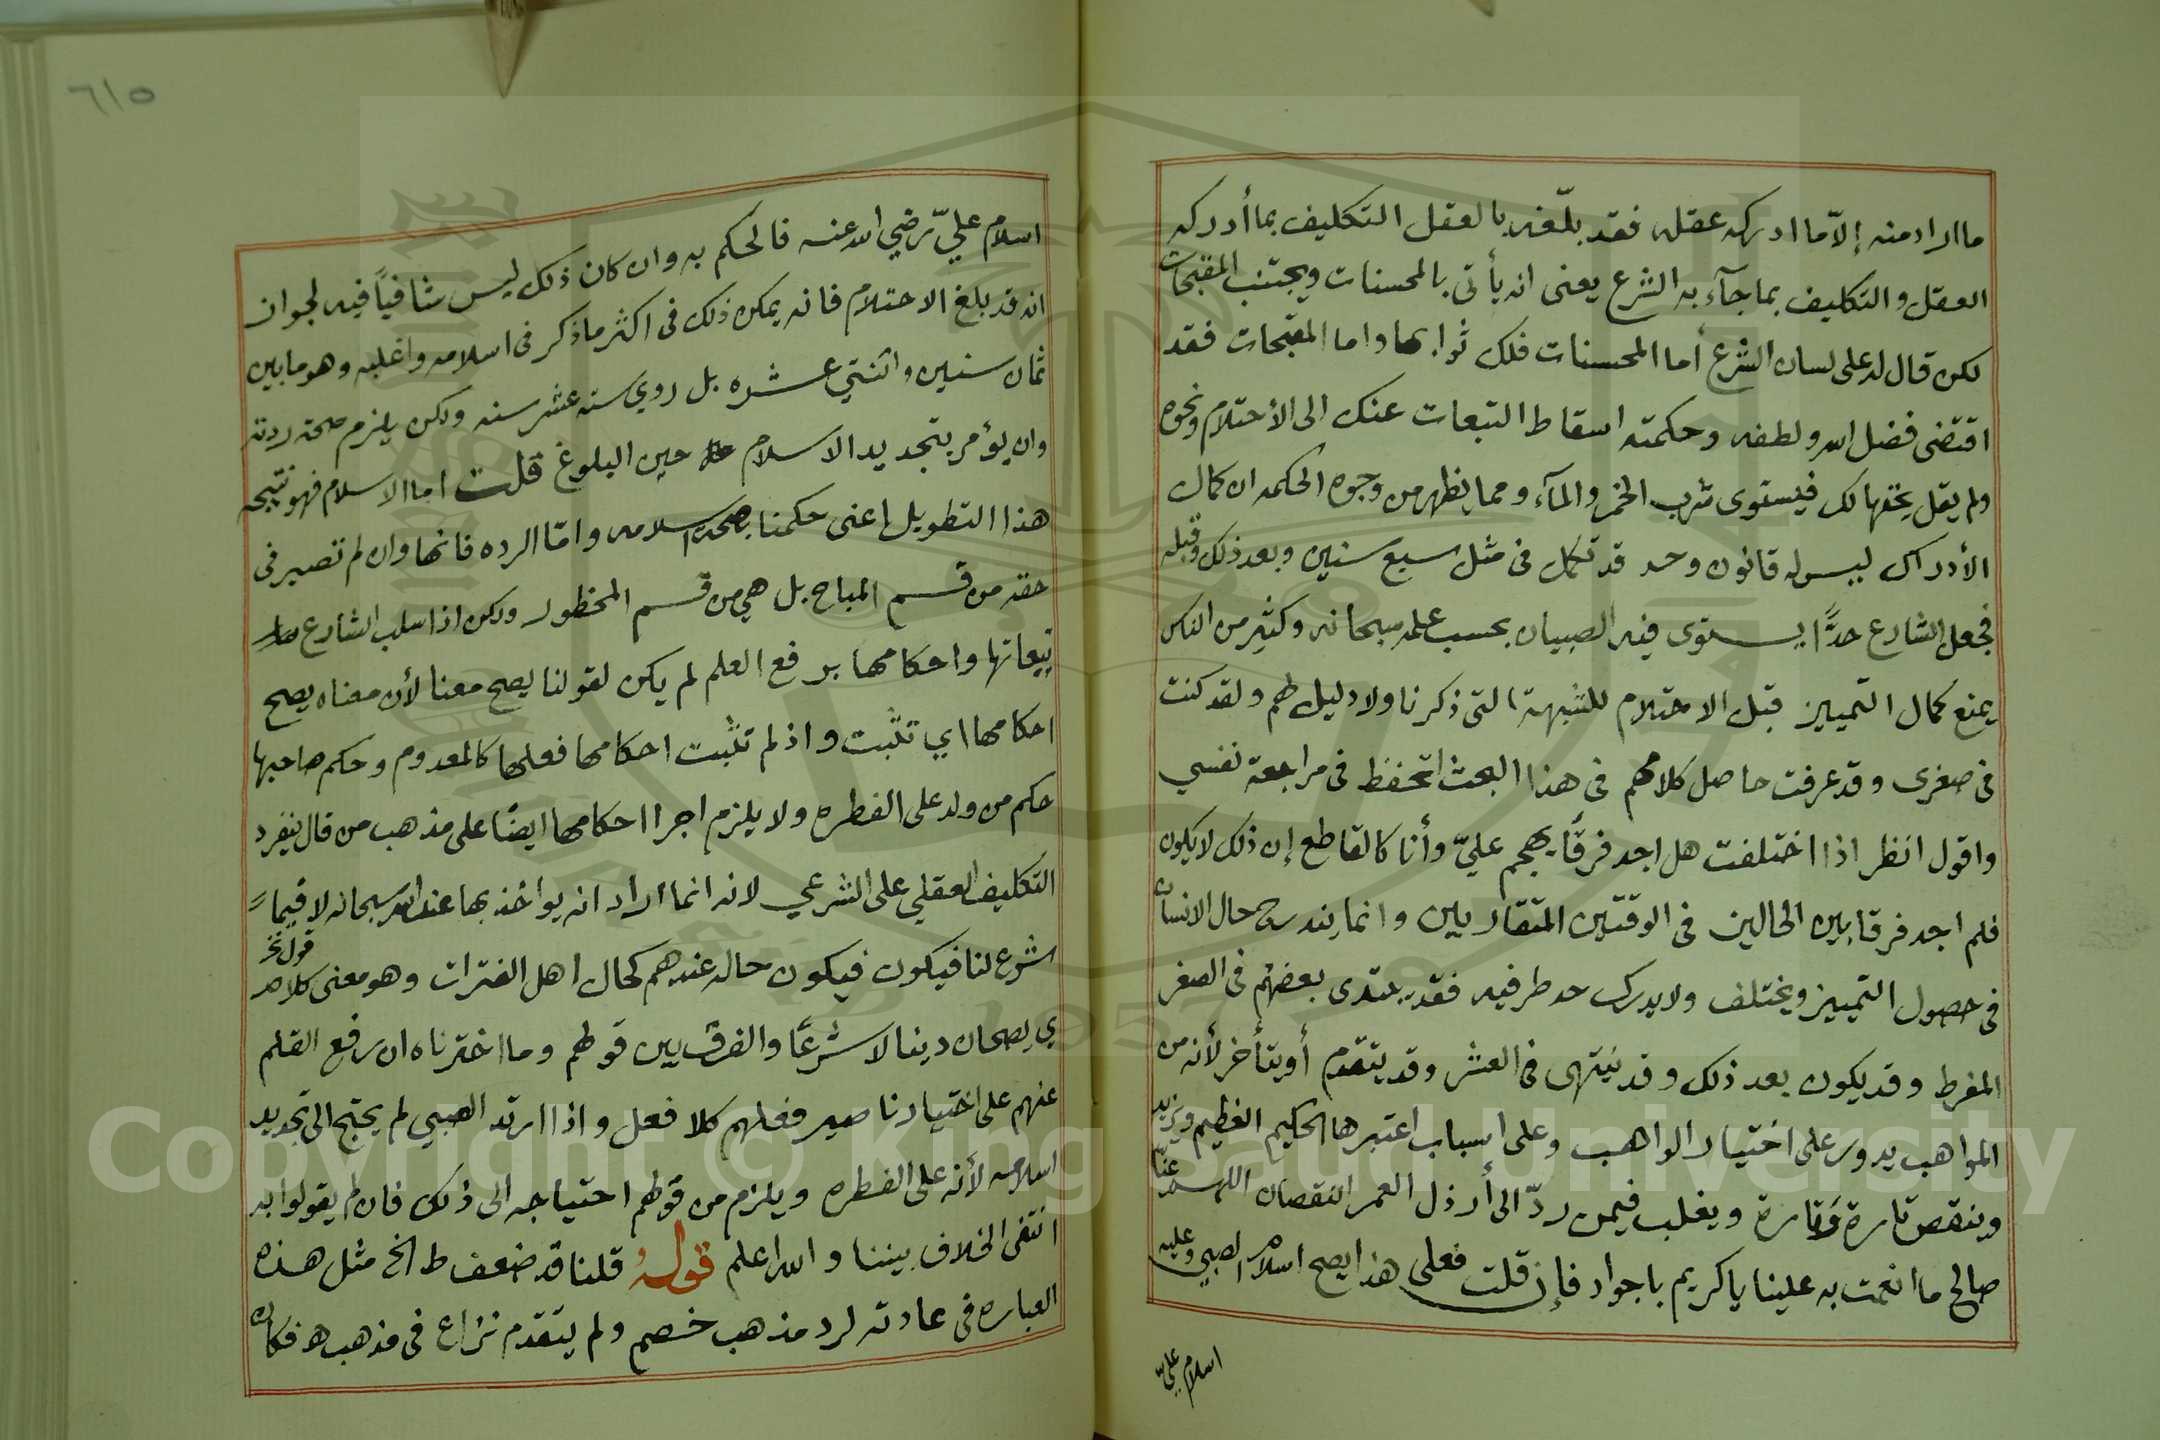 ما اراد منه إلاّ ما ادركه عقله فقد بلّغه بالعقل التكليف بما أدركه
العقل والتكليف بما جآء به الشرع يعنى انه يأتى بالمحسنات ويجتنب المقبحات
لكن قال له على لسان الشرع أما المحسنات فلك ثوابها واما المقبحات فقد
اقتضى فضل الله ولطفه وحكمته اسقاط التبعات عنك الى الأحتلام ونحوه
ولم يقل بحتها لك فيستوى شرب الخمر والمآء ومما يظهر من وجوه الحكمه ان كمال
الأدراك ليس له قانون وحد قد تكمل فى مثل سبع سنين وبعد ذلك وقبله
فجعل الشارع حدًّا يستوى فيه الصبيان بحسب علمه سبحانه وكثير من الناس
يمنع كمال التمييز قبل الاحتلام للشبهة التى ذكرنا ولا دليل لهم ولقد كنت
فى صغرى وقد عرفت حاصل كلامهم فى هذا البحث اتحفظ فى مراجعة نفسي
واقول انظر اذا اختلفت هل اجد فرقًا يهجم عليّ وأنا كالقاطع إن ذلك لا يكون
فلم اجد فرقا بين الحالين فى الوقتين المتقاربين وانما يندرج حال الانسان
فى حصول التمييز ويختلف ولا يدرك حد طرفيه فقد يبتدى بعضهم فى الصغر
المفرط وقد يكون بعد ذلك وقد ينتهى فى العشر وقد يتقدم أو يتأخر لأنه من
المواهب يدور على اختيار الواهب وعلى اسباب اعتبرها الحكيم العظيم ويزيد
وينقص تارة وتارة ويغلب فيمن ردّ الى أرذل العمر النقصان اللهم
صالح ما انعمت به علينا يا كريم يا جواد فإن قلت فعلى هذا يصح اسلام الصبي وعليه
اسلام عليّ
٦١٥
اسلام عليّ رضي الله عنه فالحكم به وان كان ذلك ليس شافيًا فيه لجواز
انه قد بلغ الاحتلام فانه يمكن ذلك فى اكثر ما ذكر فى اسلامه واغلبه وهو ما بين
ثمان سنين واثنتي عشره بل روي سته عشر سنه ولكن يلزم صحة ردته
وان يؤمر بتجديد الاسلام حين البلوغ قلت اما الاسلام فهو نتيجه
هذا التطويل اعنى حكمنا بصحة اسلامه وامّا الرده فانها وان لم تصير فى
حقه من قسم المباح بل هي من قسم المحظور ولكن اذا سلب الشارع
تبعاتها واحكامها برفع العلم لم يكن لقولنا يصح معنا لأن معناه يصح
احكامها اي تثبت واذ لم تثبت احكامها فعلها كالمعدوم وحكم صاحبها
حكم من ولد على الفطره ولا يلزم اجرا احكامها ايضًا على مذهب من قال ينفرد
التكليف العقلي على الشرعي لانه انما اراد انه يواخذ بها عند الله سبحانه لا فيما
شرع لنا فيكون فيكون حاله عندهم كحال اهل الفترات وهو معنى كلام قول
ى يصحان دينا لا شرعًا والفرق بين قولهم وما اخترناه ان رفع القلم
عنهم على اختيارنا صير فعلهم كلا فعل واذا ارتد الصبي لم يحتج الى تجديد
اسلامه لأنه على الفطره ويلزم من قولهم احتياجه الى ذلك فان لم يقولوا به
انتفى الخلاف بيننا والله اعلم قوله قلنا قد ضعف ط الخ مثل هذه
العباره فى عادته لرد مذهب خصم ولم يتقدم نزاع فى مذهب هو فكان